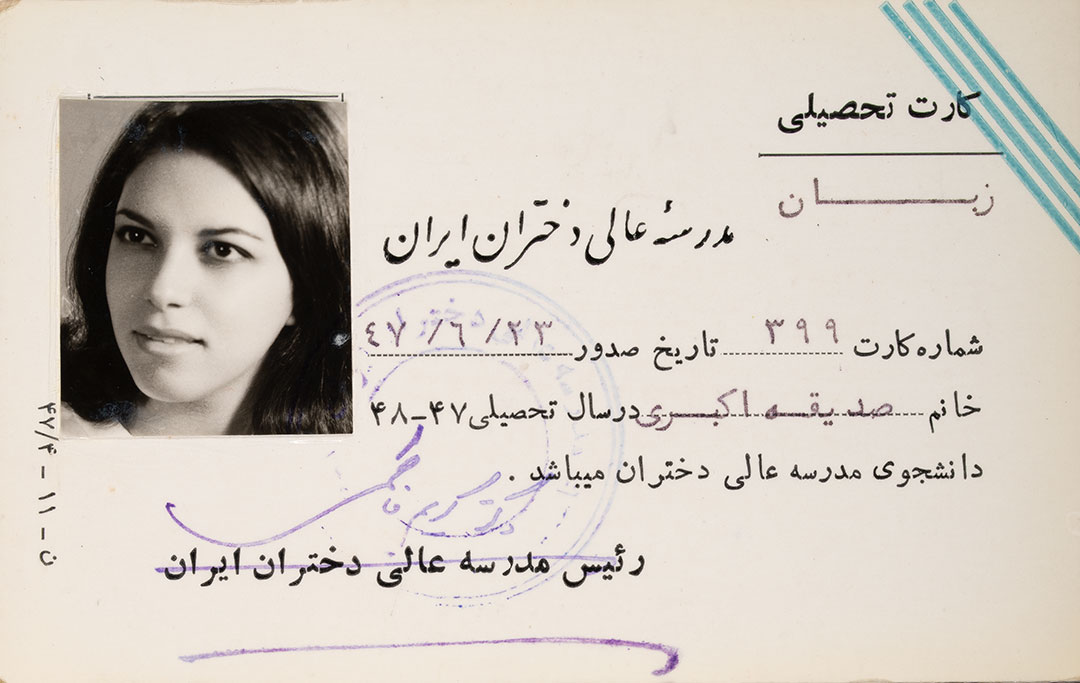 کارت تحصیلی
زبـــان
مدرسهٔ عالی دختران ایران
شماره کارت ۳۹۹ تاریخ صدور ۴۷/۶/۲۳
خانم صدیقه اکبری درسال تحصیلی ۴۷-۴۸
دانشجوی مدرسه عالی دختران میباشد .
دکتر
رئیس مدرسه عالی دختران ایران
ن - ۱۱ - ۴۷/۴